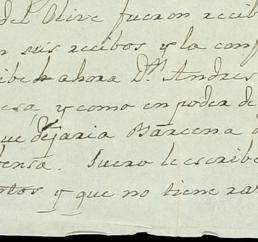 del Olive fueron recib
n sus recibos y la conf
ibe ahora Dn. Andres
esa, y como en poder de
que dejaria Barcena
bensa. Suero le escribe
y que no tiene ra